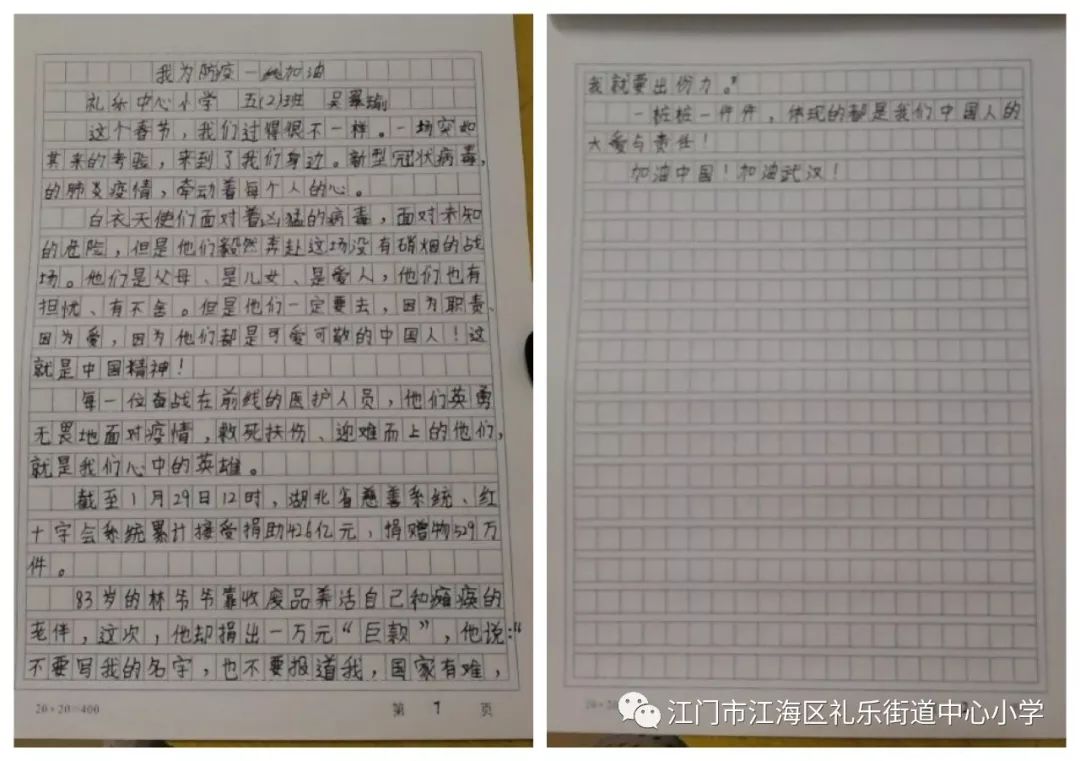 我为防疫一线加油
礼乐中心小学 五(2)班 吴翠瑜
这个春节，我们过得很不一样。一场突如
其来的考验，来到了我们身边。新型冠状病毒，
的肺炎疫情，牵动着每个人的心。
白衣天使们面对着凶猛的病毒，面对未知
的危险，但是他们毅然奔赴这场没有硝烟的战
场。他们是父母、是儿女、是爱人，他们也有
担忧、有不舍。但是他们一定要去，因为职责、
因为爱，因为他们都是可爱可敬的中国人！这
就是中国精神！
每一位奋战在前线的医护人员，他们英勇
无畏地面对疫情，救死扶伤、迎难而上的他们，
就是我们心中的英雄。
截至1月29日12时，湖北省慈善系统、红
十字会系统累计接受捐助42.6亿元，捐赠物529万
件。
83岁的林爷爷靠收废品养活自己和瘫痪的
老伴，这次，他却捐出一万元“巨款”，他说：“
不要写我的名字，也不要报道我，国家有难，
20×20=400 第 1 页
我就要出份力。”
一桩桩一件件，体现的都是我们中国人的
大爱与责任！
加油中国！加油武汉！
20×20
江门市江海区礼乐街道中心小学